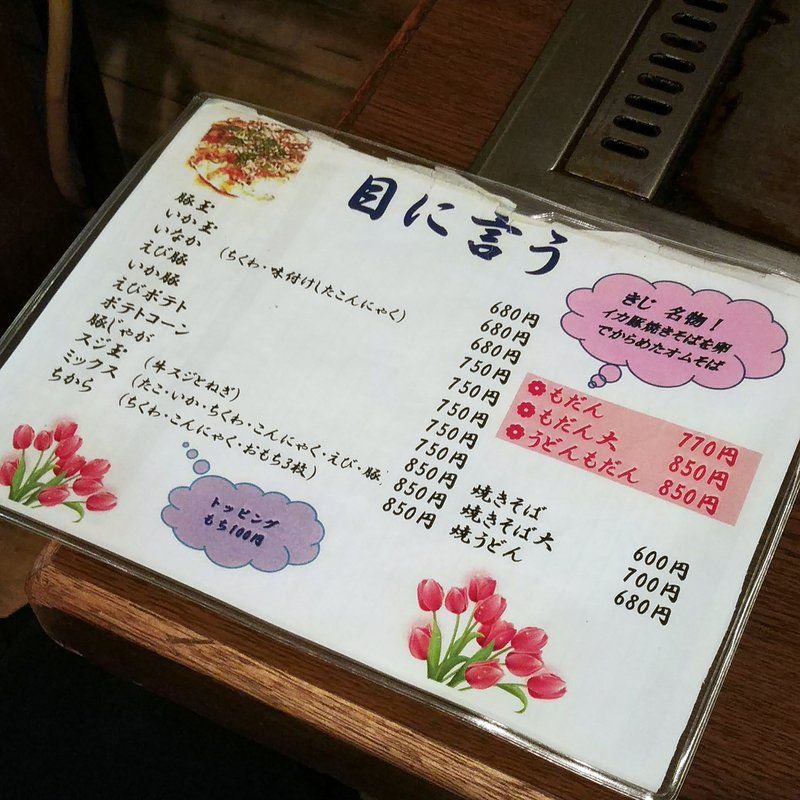 目に言う
豚玉 680円
いか玉 680円
いなか (ちくわ・味付けしたこんにゃく) 680円
えび豚 750円
いか豚 750円
えびポテト 750円
ポテトコーン 750円
豚じゃが 750円
スジ玉 (牛スジとねぎ) 850円
ミックス (たこ・いか・ちくわ・こんにゃく・えび・豚) 850円
ちから (ちくわ・こんにゃく・おもち3枚) 850円
トッピング
もち100円
きじ 名物!
イカ豚焼きそばを卵
でからめたオムそば
もだん 770円
もだん大 850円
うどんもだん 850円
焼きそば 600円
焼きそば大 700円
焼うどん 680円